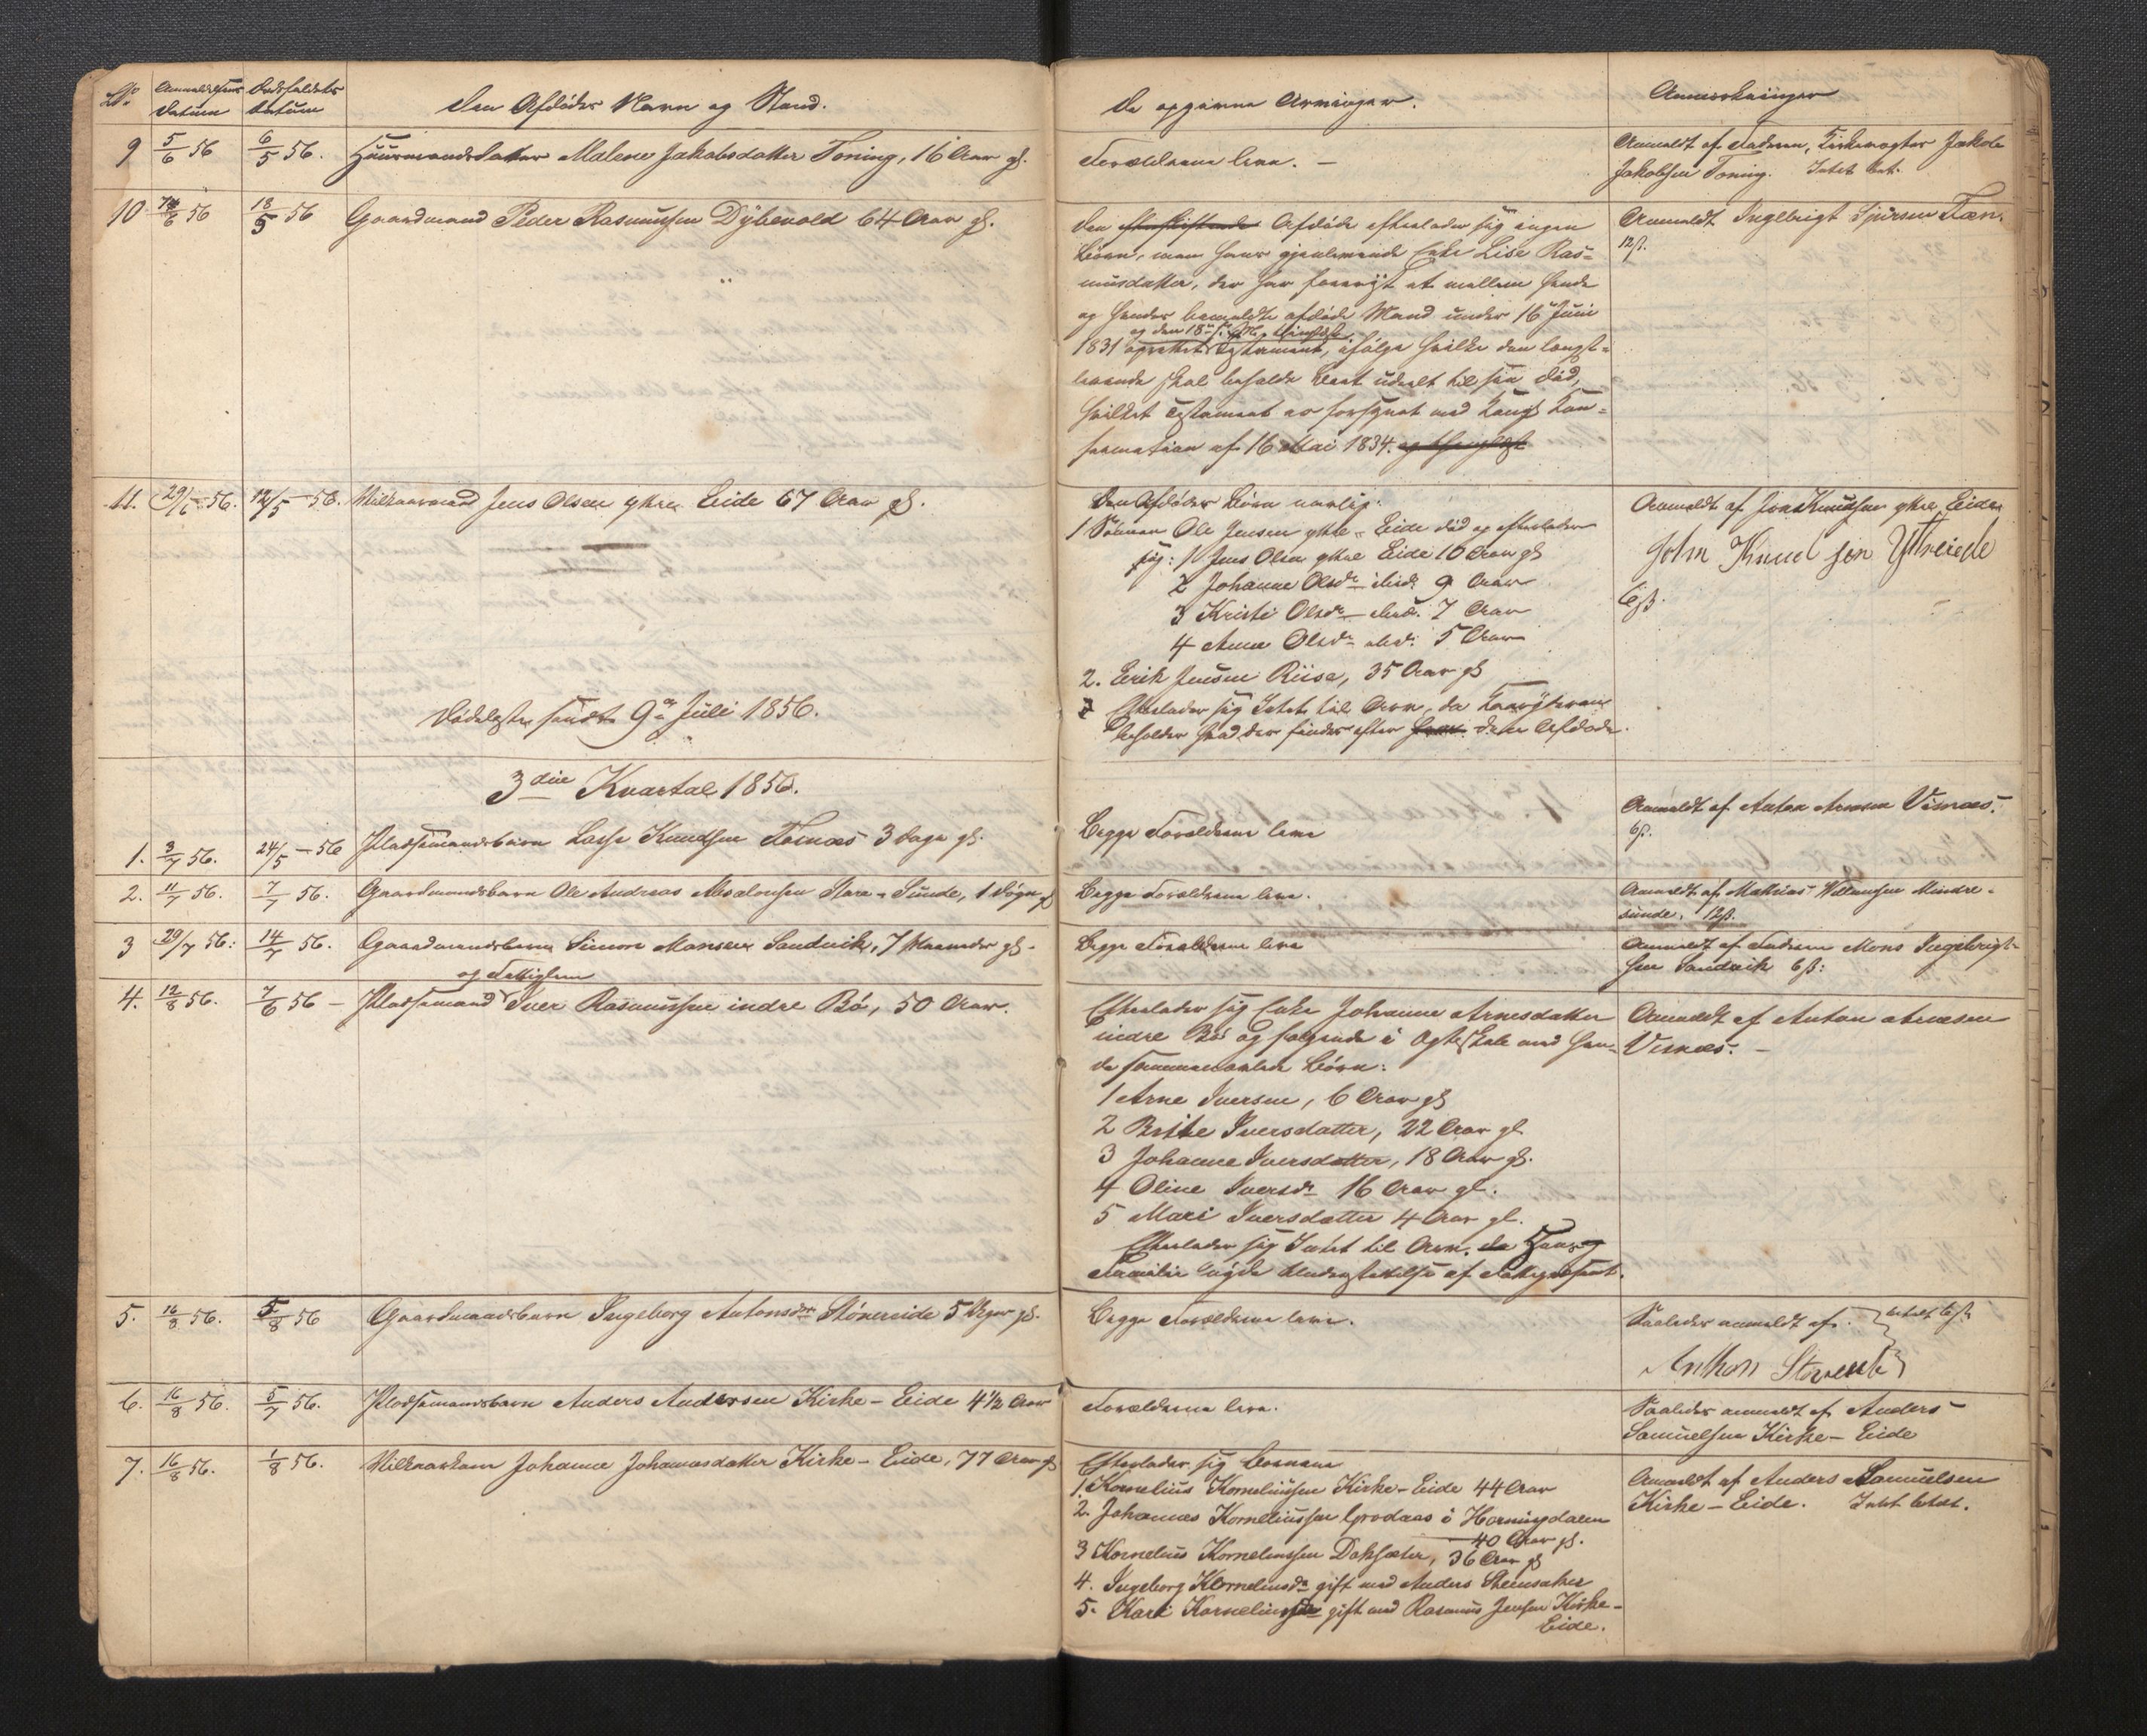 No
Anmeldelsens Datum
Dødsfaldets Datum
Den Afdødes Navn og Stand.
De opgivne Arvinger.
Anmerkninger
9 5/6 56 6/5 56. Huusmandsdatter Malene Jakobsdatter Toning, 16 Aar gl.
Forældrene leve. —
Anmeldt af Faderen, Kirkevogter Jakob
Jakobsen Toning. Intet bet.
10 14/6 56 18/5 56 Gaardmand Peder Rasmussen Dybevold 64 Aar gl.
Den Afdøde efterlader sig ingen
Børn, men hans gjenlevende Enke Lise Ras=
musdatter, der har foreviist et mellem hende
og hendes bemeldte afdøde Mand under 16 Juni
og den 18de s. M. thinglæst
1831 oprettet Testament, ifølge hvilke den længst=
levende skal beholde Boet udeelt til sin Død,
hvilket Testament er forsynet med Kongl. Kon=
firmation af 16 Mai 1834.
Anmeldt Ingebrigt
12 ß.
11. 29/6 - 56. 12/5 - 56. Vilkaarmand Jens Olsen ytre Eide 67 Aar gl.
Den Afdødes Børn navnlig:
1 Sønnen Ole Jensen ytre Eide død og efterlader
sig: 1 Jens Olsen ytre Eide 10 Aar gl
2 Johanne Olsdr ibid. 9 Aar
3 Kristi Olsdr ibid. 7 Aar
4 Anne Olsdr ibid. 5 Aar
2. Erik Jensen Riise, 35 Aar gl
Efterlader sig Intet til Arv, da
beholder hvad der findes efter den Afdøde.
Anmeldt af Jon Knudsen ytre Eide
John Knudsen Ytreeide
6 ß.
Dødslisten sendt 9de Juli 1856.
3die Kvartal 1856.
1. 3/7 56. 24/5 - 56 Pladsemandsbarn Lasse Knudsen Tornæs 3 Dage gl.
Begge Forældrene leve
Anmeldt af Anton Arnesen Visnæs.
6 ß.
2. 11/7 56. 7/7 56. Gaardmandsbarn Ole Andreas Absalonsen Store-Sunde, 1 Døgn gl
Begge Forældrene leve.
Anmeldt af Mathias Willumsen Mindre-
sunde. 12 ß.
3 29/7 56: 14/7 56. Gaardmandsbarn Simon Monsen Sandvik, 7 Maaneder gl.
Begge Forældrene leve
Anmeldt af Faderen Mons Ingebrigt-
sen Sandvik 6 ß:
og Fattiglem
4. 12/8 56. 7/6 56 — Pladsemand Iver Rasmussen indre Bø, 50 Aar.
Efterlader sig Enke Johanne Arnesdatter
indre Bø og følgende i Ægteskab med hen-
de sammenavlede Børn:
1 Arne Iversen, 6 Aar gl
2 Brithe Iversdatter, 22 Aar gl.
3 Johanne Iversdatter, 18 Aar gl.
4 Oline Iversdr 16 Aar gl.
5 Mari Iversdatter 4 Aar gl.
Efterlader sig Intet til Arv. da Han og
Familie nyde Understøttelse af Fattigvæsenet.
Anmeldt af Anton Arnesen
Visnæs. —
5. 16/8 56. 5/8 56 Gaardmandsbarn Ingeborg Antonsdr Størereide 5 Uger gl.
Begge Forældrene leve.
Saaledes anmeldt af. betalt 6 ß
Anthon
6. 16/8 56. 5/7 56. Pladsemandsbarn Anders Andersen Kirke-Eide 4 1/2 Aar
Forældrene leve.
Saaledes anmeldt af Anders
Samuelsen Kirke-Eide
7. 16/8 56. 1/8 56. Vilkaarkone Johanne Johannesdatter Kirke-Eide, 77 Aar gl
Efterlader sig Børnene
1. Kornelius Korneliussen Kirke-Eide 44 Aar
2. Johannes Korneliussen Grodaas i Horningdalen
40 Aar gl.
3 Kornelius Korneliussen Doksæter, 36 Aar gl
4. Ingeborg Korneliusdr gift med Anders Steinsaker
5. Kari Korneliusdr gift med Rasmus Jensen Kirke-
Eide.
Anmeldt af Anders Samuelsen
Kirke-Eide. Intet betalt.